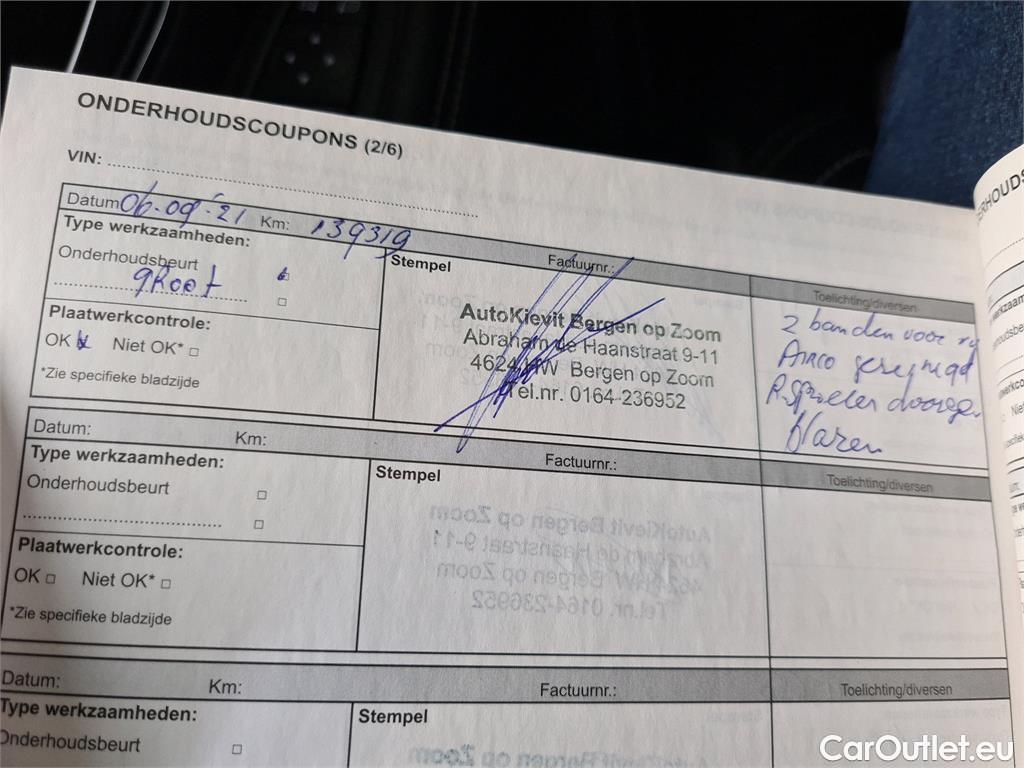 ONDERHOUDSCOUPONS (2/6)
VIN:
Datum 06-09-'21 Km: 139319
Factuurnr.:
Toelichting/diversen
Type werkzaamheden:
Onderhoudsbeurt
groot
Plaatwerkcontrole:
OK Niet OK*
*Zie specifieke bladzijde
Stempel
AutoKievit Bergen op Zoom
Abraham de Haanstraat 9-11
4624 HW Bergen op Zoom
Tel.nr. 0164-236952
2 banden voor
Airco gereinigd
Datum: Km:
Factuurnr.:
Toelichting/diversen
Type werkzaamheden:
Onderhoudsbeurt
Plaatwerkcontrole:
OK Niet OK*
*Zie specifieke bladzijde
Stempel
Datum: Km:
Factuurnr.:
Toelichting/diversen
Type werkzaamheden:
Onderhoudsbeurt
Stempel
CarOutlet.eu